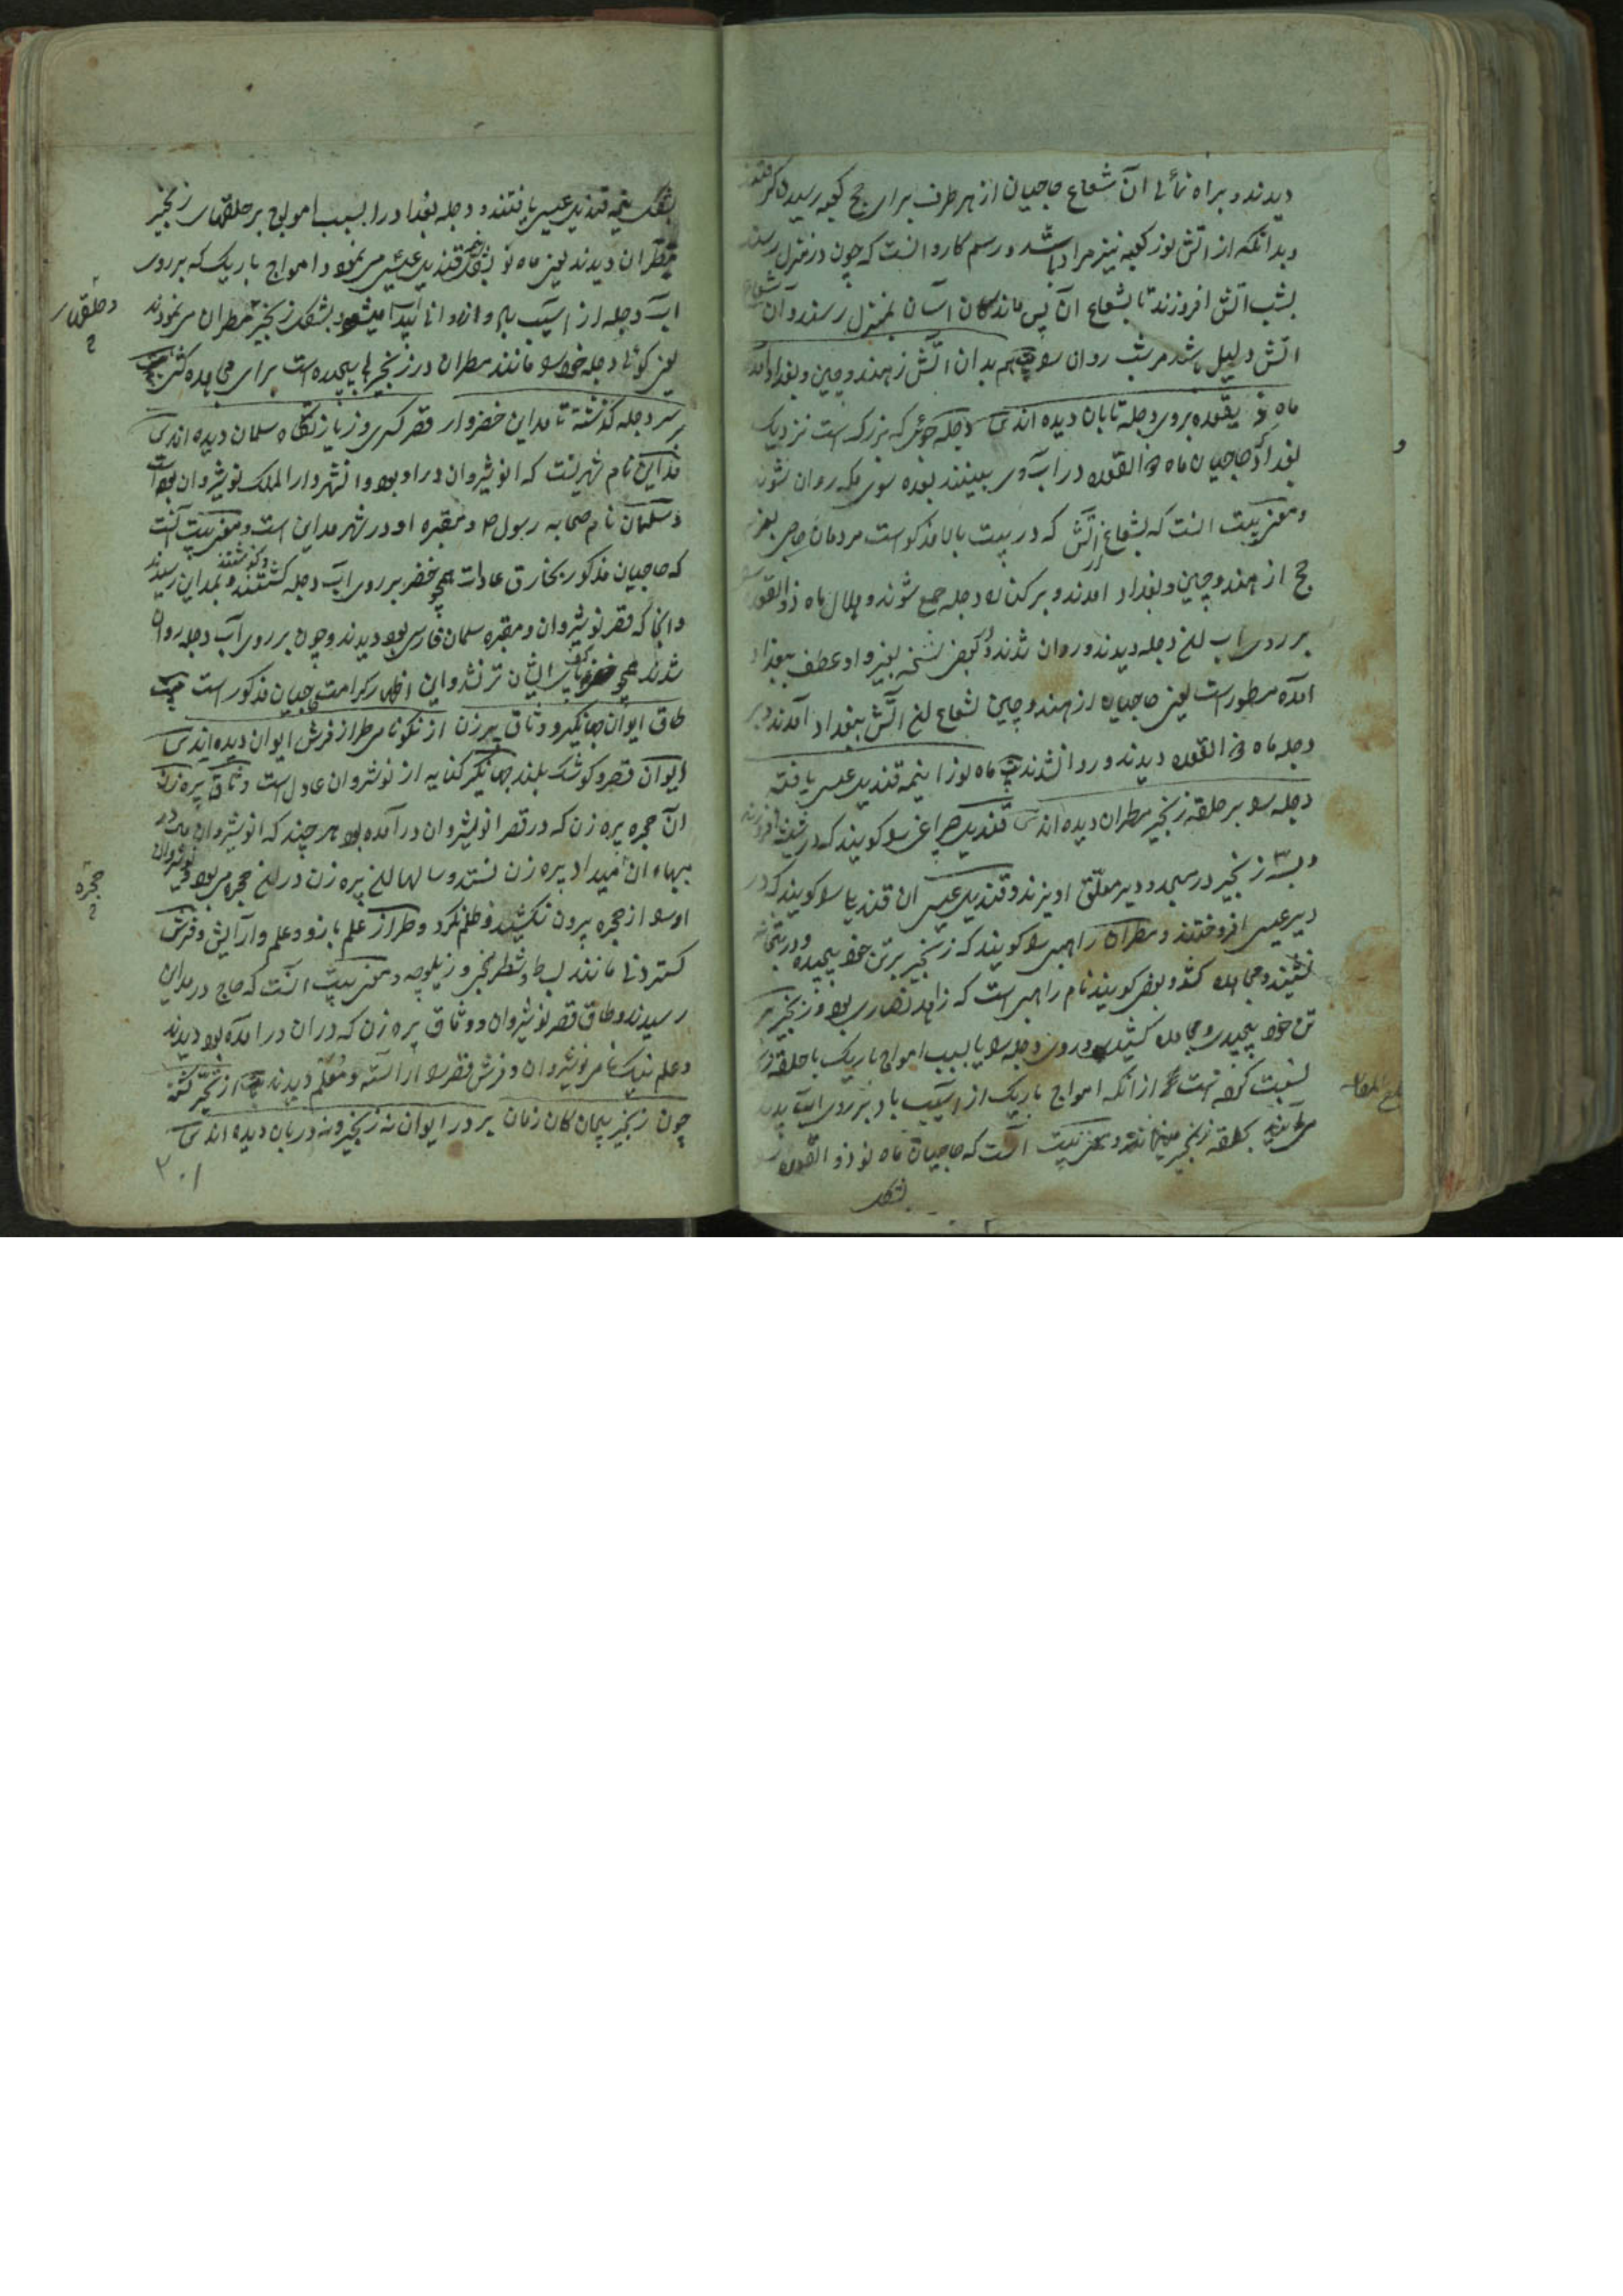 دیدند و براه نمائی آن شعاع حاجیان از هر طرف برای حج کعبه رسیدن گرفتند
و بدانکه از آتش نور کعبه نیز مراد باشد و رسم کاروانست که چون در منزل رسند
بشب آتش افروزند تا بشعاع آن پس ماندگان آسان بمنزل رسند و آن شعاع
آتش دلیل باشد مر شب روان سو بیت هم بدان آتش ز هند و چین و بغداد آمده
ماه ذی یقعده بروی دجله تابان دیده اند ش دجله جوئی که بزرگ است نزدیک
بغداد حاجیان ماه ذی القعده در آب وی ببینند بعده سوی مکه روان شوند
و معنی بیت آنست که بشعاع آتش که در بیت بالا مذکور است مردمان خاص بعزم
حج از هند و چین و بغداد آمدند و بر کناره دجله جمع شوند و هلال ماه ذو القعده
بر روی آب لخ دجله دیدند و روان شدند و بعض نسخه بغیر واو عطف ببغداد
آمده مسطور است یعنی حاجیان از هند و چین بشعاع لخ آتش ببغداد آمدند و بر
دجله ماه ذی القعده دیدند و روان شدند بیت ماه نو را نیمه قندیل عیسی یافته
دجله را بر حلقه زنجیر مطران دیده اند ش قندیل چراغی را گویند که در شیشه افروزند
و بسته زنجیر در مسجد و دیر معلق آویزند و قندیل عیسی آن قندیل را گویند که در
دیر عیسی افروختند و مطران راهبی را گویند که زنجیر بر تن خود پیچیده و در بتخانه
نشیند و مجاهده کند و بعض گویند نام راهبی است که زاهد نصاری بود و زنجیر بر
تن خود پیچیدی و مجاهده کشیدی و روی دجله را یا بسبب امواج باریک با حلقه زنجیر
نسبت کرده است از آنکه امواج باریک از آسیب باد بر روی آب پدید
می آیند بحلقه زنجیر میمانند و معنی بیت آنست که حاجیان ماه نو ذو القعده را
بشکل
بشکل نیمه قندیل عیسی یافتند و دجله بغداد را بسبب امواج بر حلقهای زنجیر
مطران دیدند یعنی ماه نو بشکل نیمه قندیل عیسی می نمود و امواج باریک که بر روی
آب دجله از آسیب باد و از روانی پیدا میشود بشکل زنجیر مطران می نمودند
و حلقهای
یعنی گوئی دجله خود را مانند مطران در زنجیرها پیچیده است برای مجاهده کشی بیت
بر سر دجله گذشته تا مداین خضر وار قصر کسری و زیارتگاه سلمان دیده اند ش
مداین نام شهریست که انوشیروان در او بود و آن شهر دار الملک نوشیروان بود است
و سلمان نام صحابه رسول ص و مقبره او در شهر مداین است و معنی بیت آنست
که حاجیان مذکور بخارق عادات همچو خضر بر روی آب دجله گشتند و گذشتند و بمداین رسیدند
و آنجا که قصر نوشیروان و مقبره سلمان فارسی بود دیدند و چون بر روی آب دجله روان
شدند همچو خضر کف پای ایشان تر نشد و این اظهار کرامت حاجیان مذکور است بیت
طاق ایوان جهانگیر و وثاق پیرزن از نکونامی طراز فرش ایوان دیده اند ش
ایوان قصر و کوشک بلند جهانگیر کنایه از نوشروان عادل است وثاق پیره زن
آن حجره پیره زن که در قصر انوشیروان در آمده بود هر چند که انوشیروان
بهاء آن میداد پیره زن نستد و سالها لخ پیره زن در لخ حجره می بود و نوشیروان
حجره
او را از حجره بیرون نکشید و ظلم نکرد و طراز علم بازو و علم و آرایش و فرش
گستردنی مانند بساط و شطرنجی و زیلوچه و معنی بیت آنست که حاج در مداین
رسیدند و طاق قصر نوشیروان و وثاق پیره زن که در آن در آمده بود دیدند
و علم نیک نامی نوشیروان و فرش قصر را آراسته و معلم دیدند بیت از تحیر گشته
چون زنجیر پیچان کان زمان بر در ایوان نه زنجیر و نه دربان دیده اند ش
۲۰۱